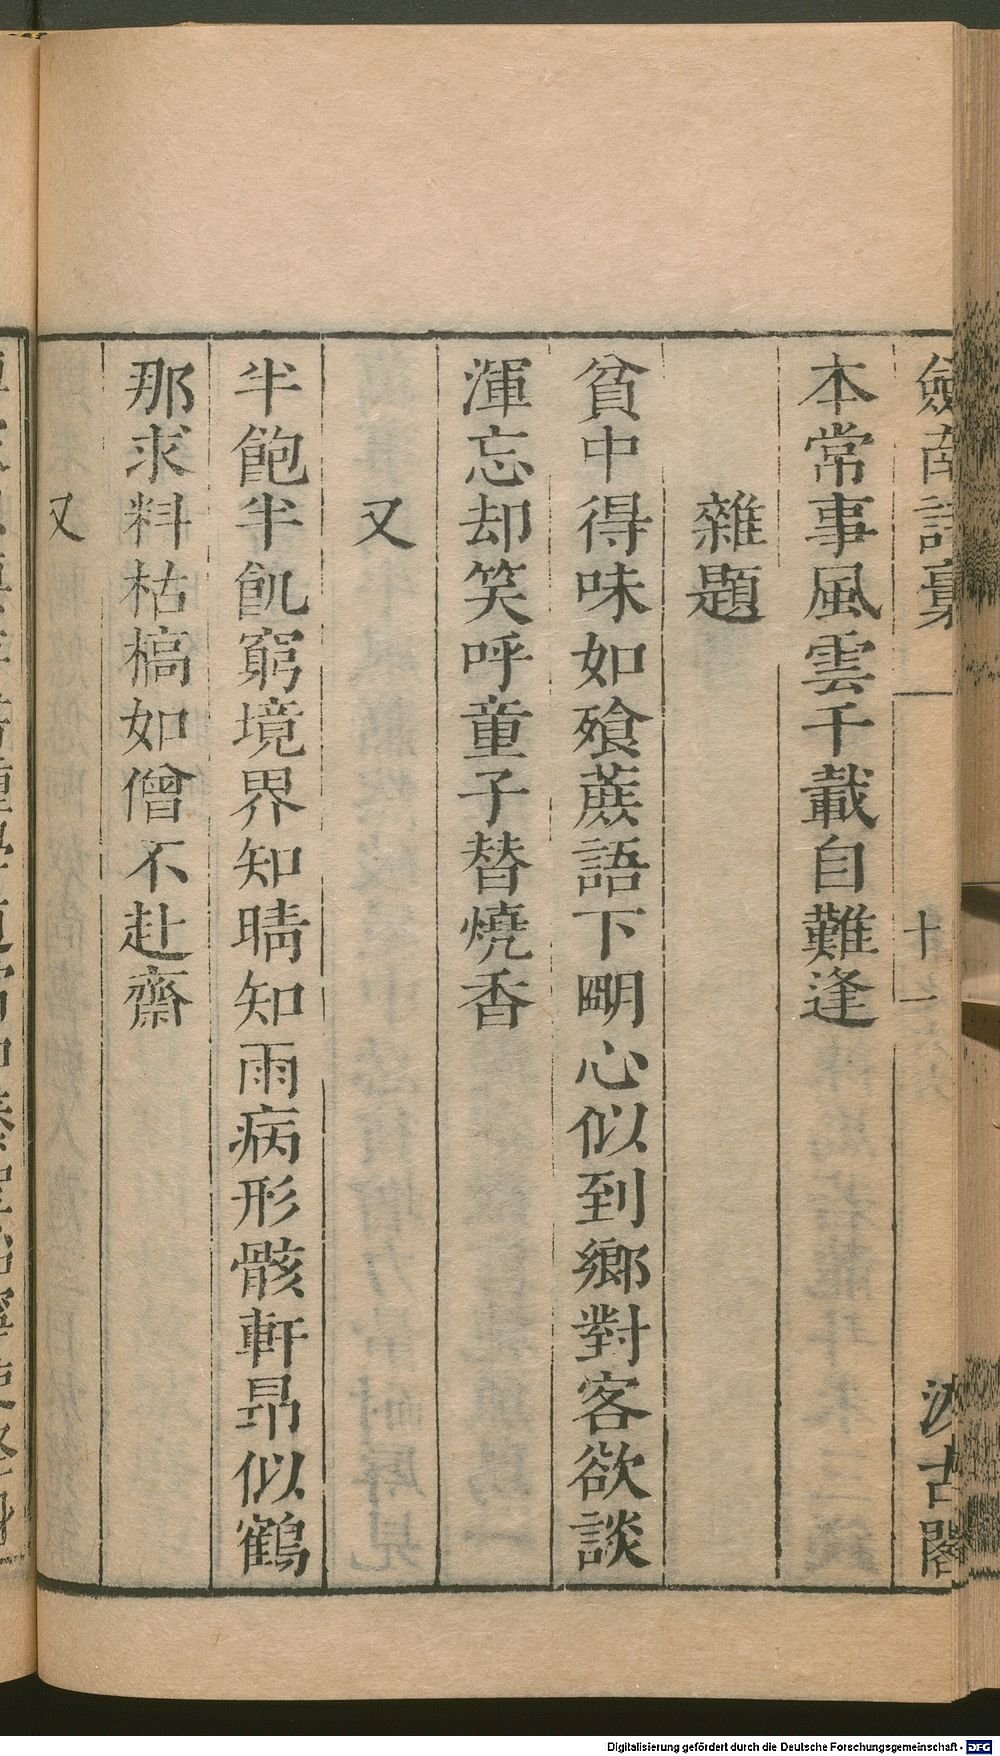 劒南詩稾
十一
汲古閣
本常事風雲千載自難逢
雜題
貧中得味如飧蔗語下明心似到鄉對客欲談
渾忘却笑呼童子替燒香
又
半飽半飢窮境界知晴知雨病形骸軒昂似鶴
那求料枯槁如僧不赴齋
又
Digitalisierung gefördert durch die Deutsche Forschungsgemeinschaft - DFG